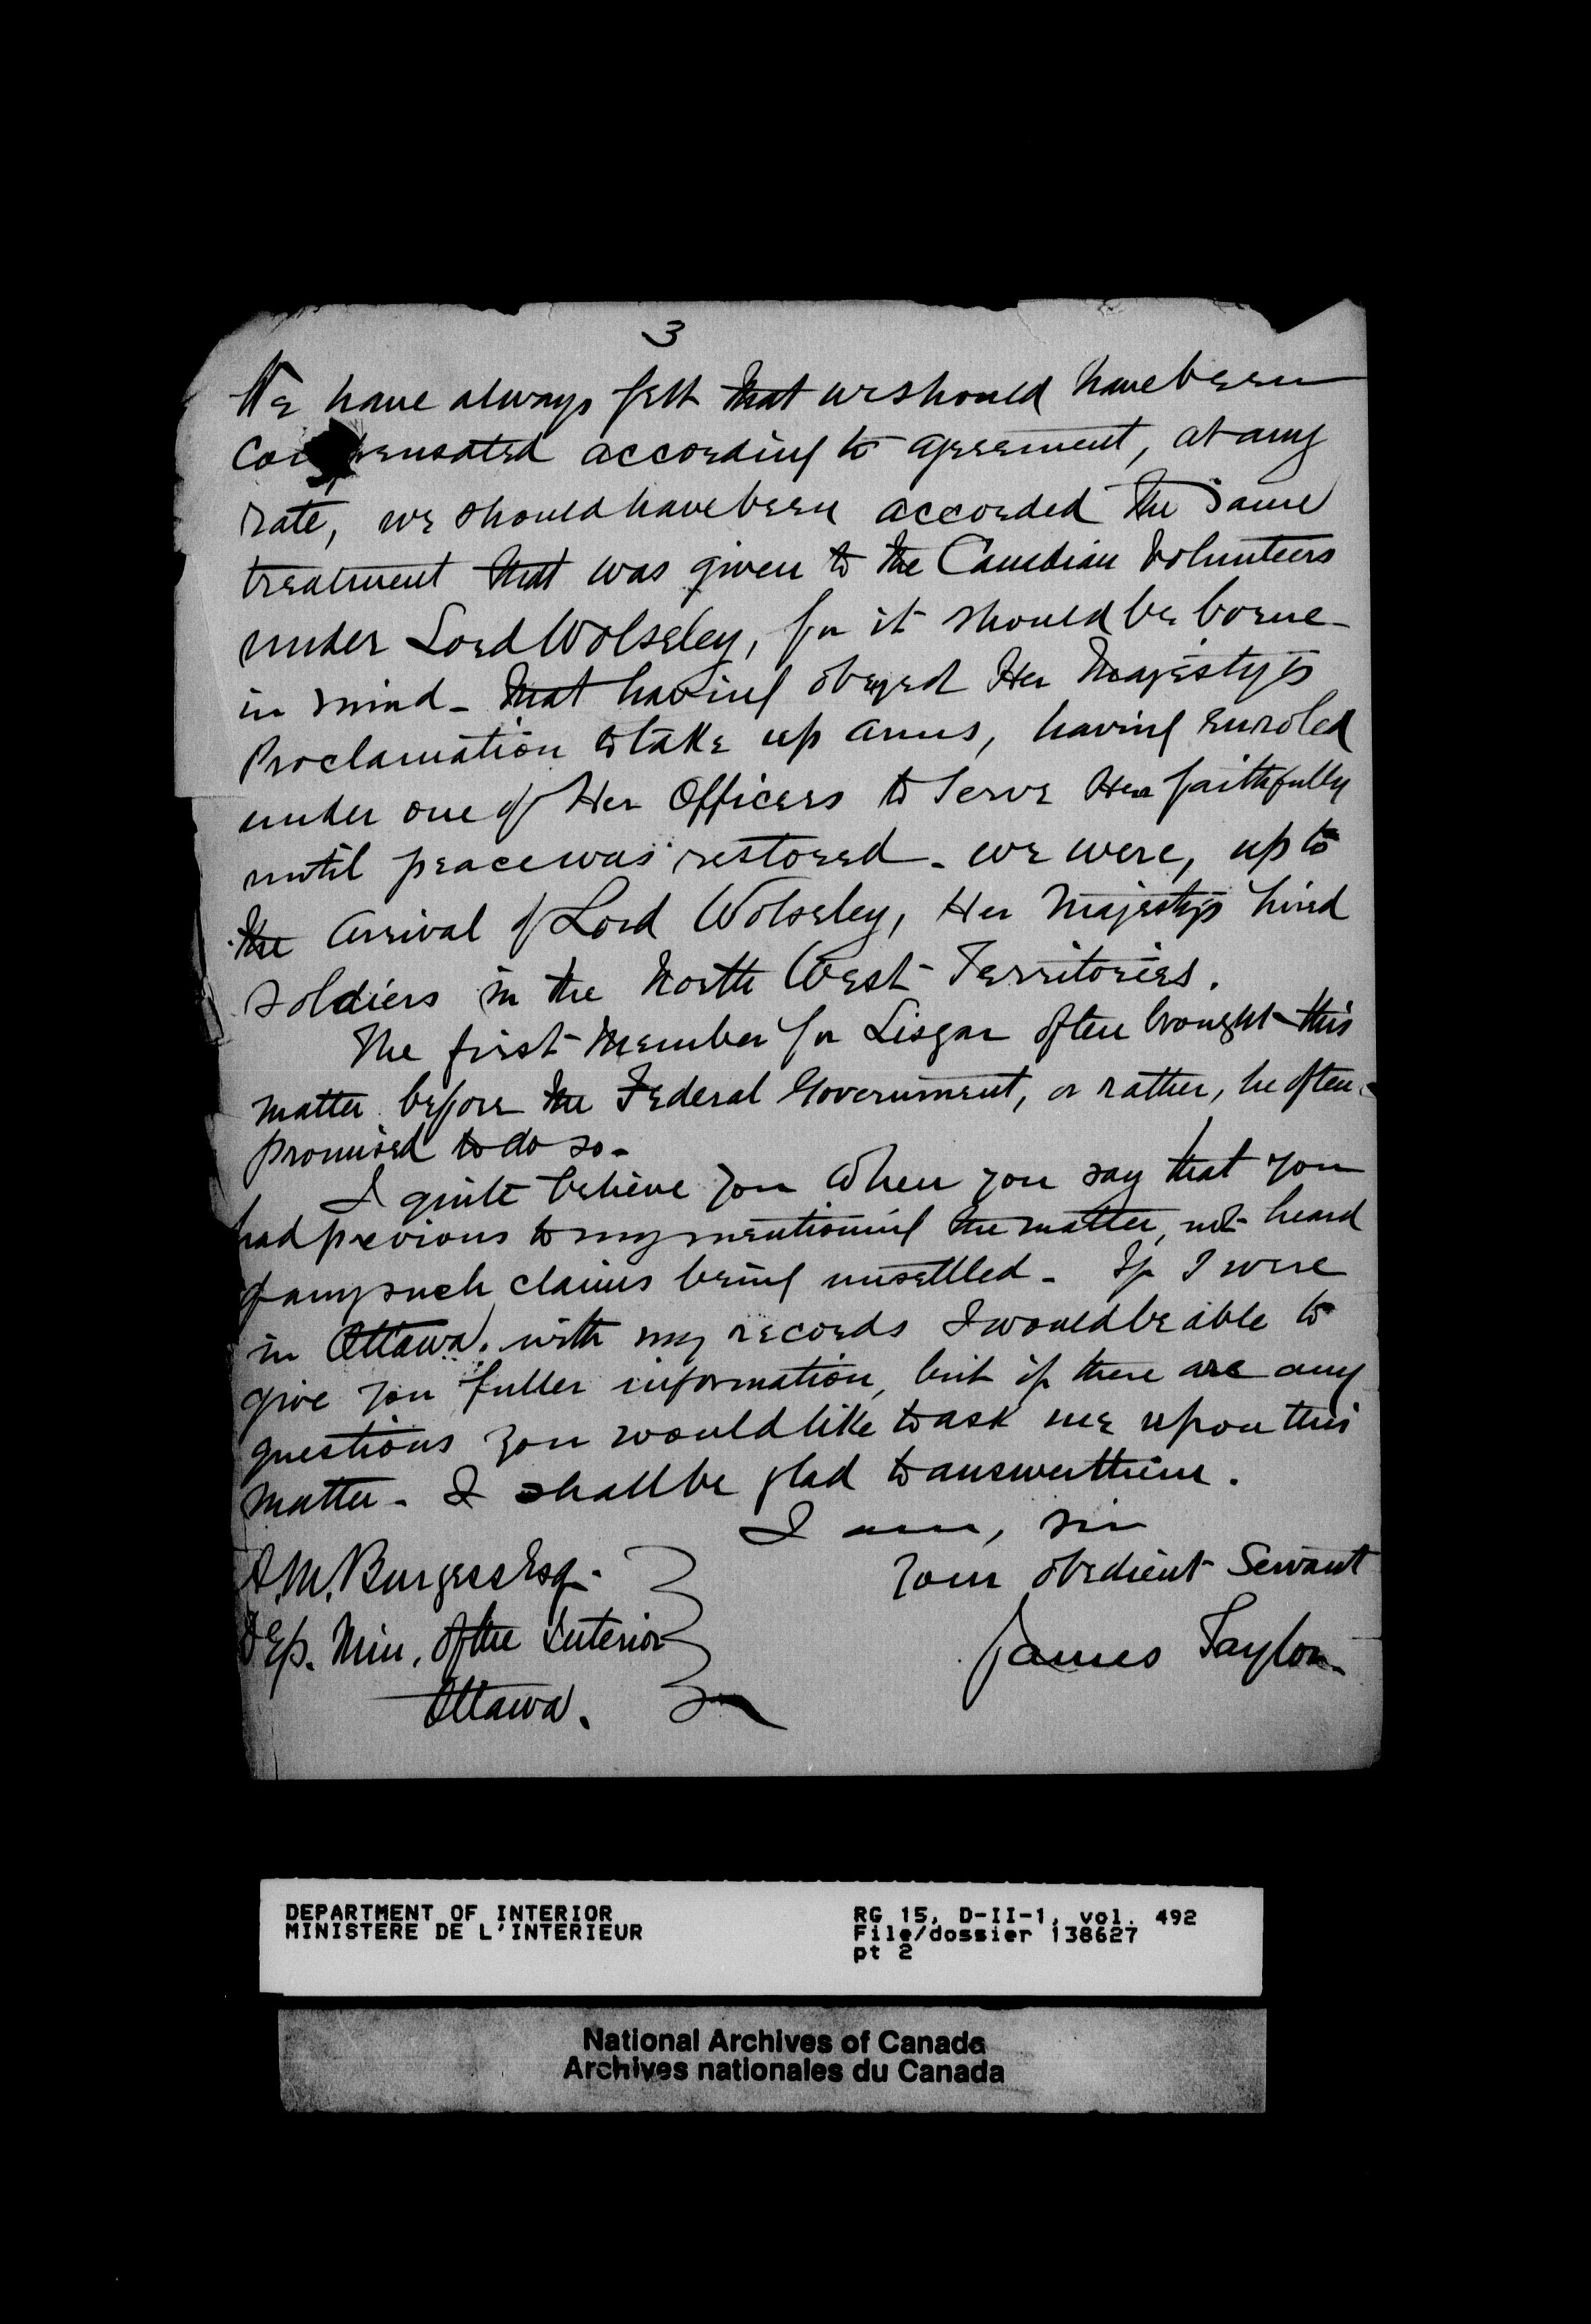 3
We have always felt that we should have been
compensated according to agreement, at any
rate, we should have been accorded the same
treatment that was given to the Canadian Volunteers
under Lord Wolseley, for it should be borne
in mind - that having obeyed Her Majesty's
Proclamation to take up arms, having enroled
under one of Her Officers to serve Her faithfully
until peace was restored - we were, up to
the arrival of Lord Wolseley, Her Majesty's hired
soldiers in the North West Territories.
The first Member for Lisgar often brought this
matter before the Federal Government, or rather, he often
promised to do so -
I quite believe you when you say that you
had previous to my mentioning the matter, not heard
of any such claims being unsettled - If I were
in Ottawa, with my records I would be able to
give you fuller information, but if there are any
questions you would like to ask me upon this
matter - I shall be glad to answer them.
I am, sir
Your obedient Servant
James Taylor
A. M. Burgess Esq.
Dep. Min. of the Interior
Ottawa.
DEPARTMENT OF INTERIOR
MINISTERE DE L'INTERIEUR
RG 15, D-II-1, vol. 492
File/dossier 138627
pt 2
National Archives of Canada
Archives nationales du Canada